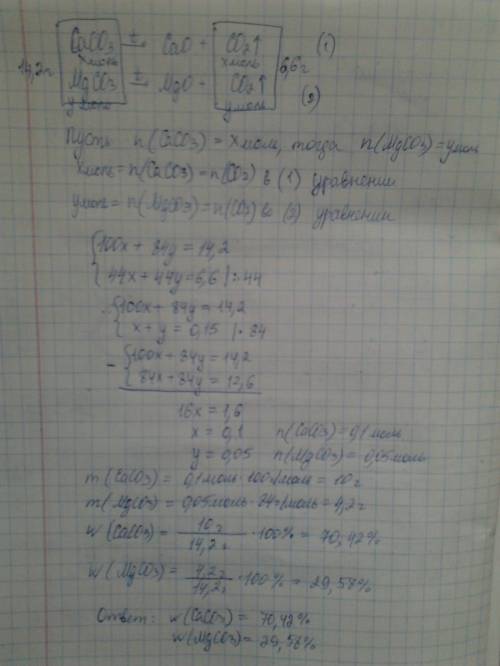 CaCO3 t→ CaO + CO2↑ (1)
x моль x моль
14,2г 6,6г
MgCO3 t→ MgO + CO2↑ (2)
y моль y моль
Пусть n(CaCO3) = x моль, тогда n(MgCO3) = y моль
x моль = n(CaCO3) = n(CO2) в (1) уравнении
y моль = n(MgCO3) = n(CO2) во (2) уравнении
{100x + 84y = 14,2
44x + 44y = 6,6 |:44
{100x + 84y = 14,2
x + y = 0,15 |·84
- {100x + 84y = 14,2
84x + 84y = 12,6
16x = 1,6
x = 0,1 n(CaCO3) = 0,1 моль
y = 0,05 n(MgCO3) = 0,05 моль
m(CaCO3) = 0,1 моль · 100 г/моль = 10 г
m(MgCO3) = 0,05 моль · 84 г/моль = 4,2 г
w(CaCO3) = 10 г / 14,2 г · 100% = 70,42%
w(MgCO3) = 4,2 г / 14,2 г · 100% = 29,58%
Ответ: w(CaCO3) = 70,42%
w(MgCO3) = 29,58%